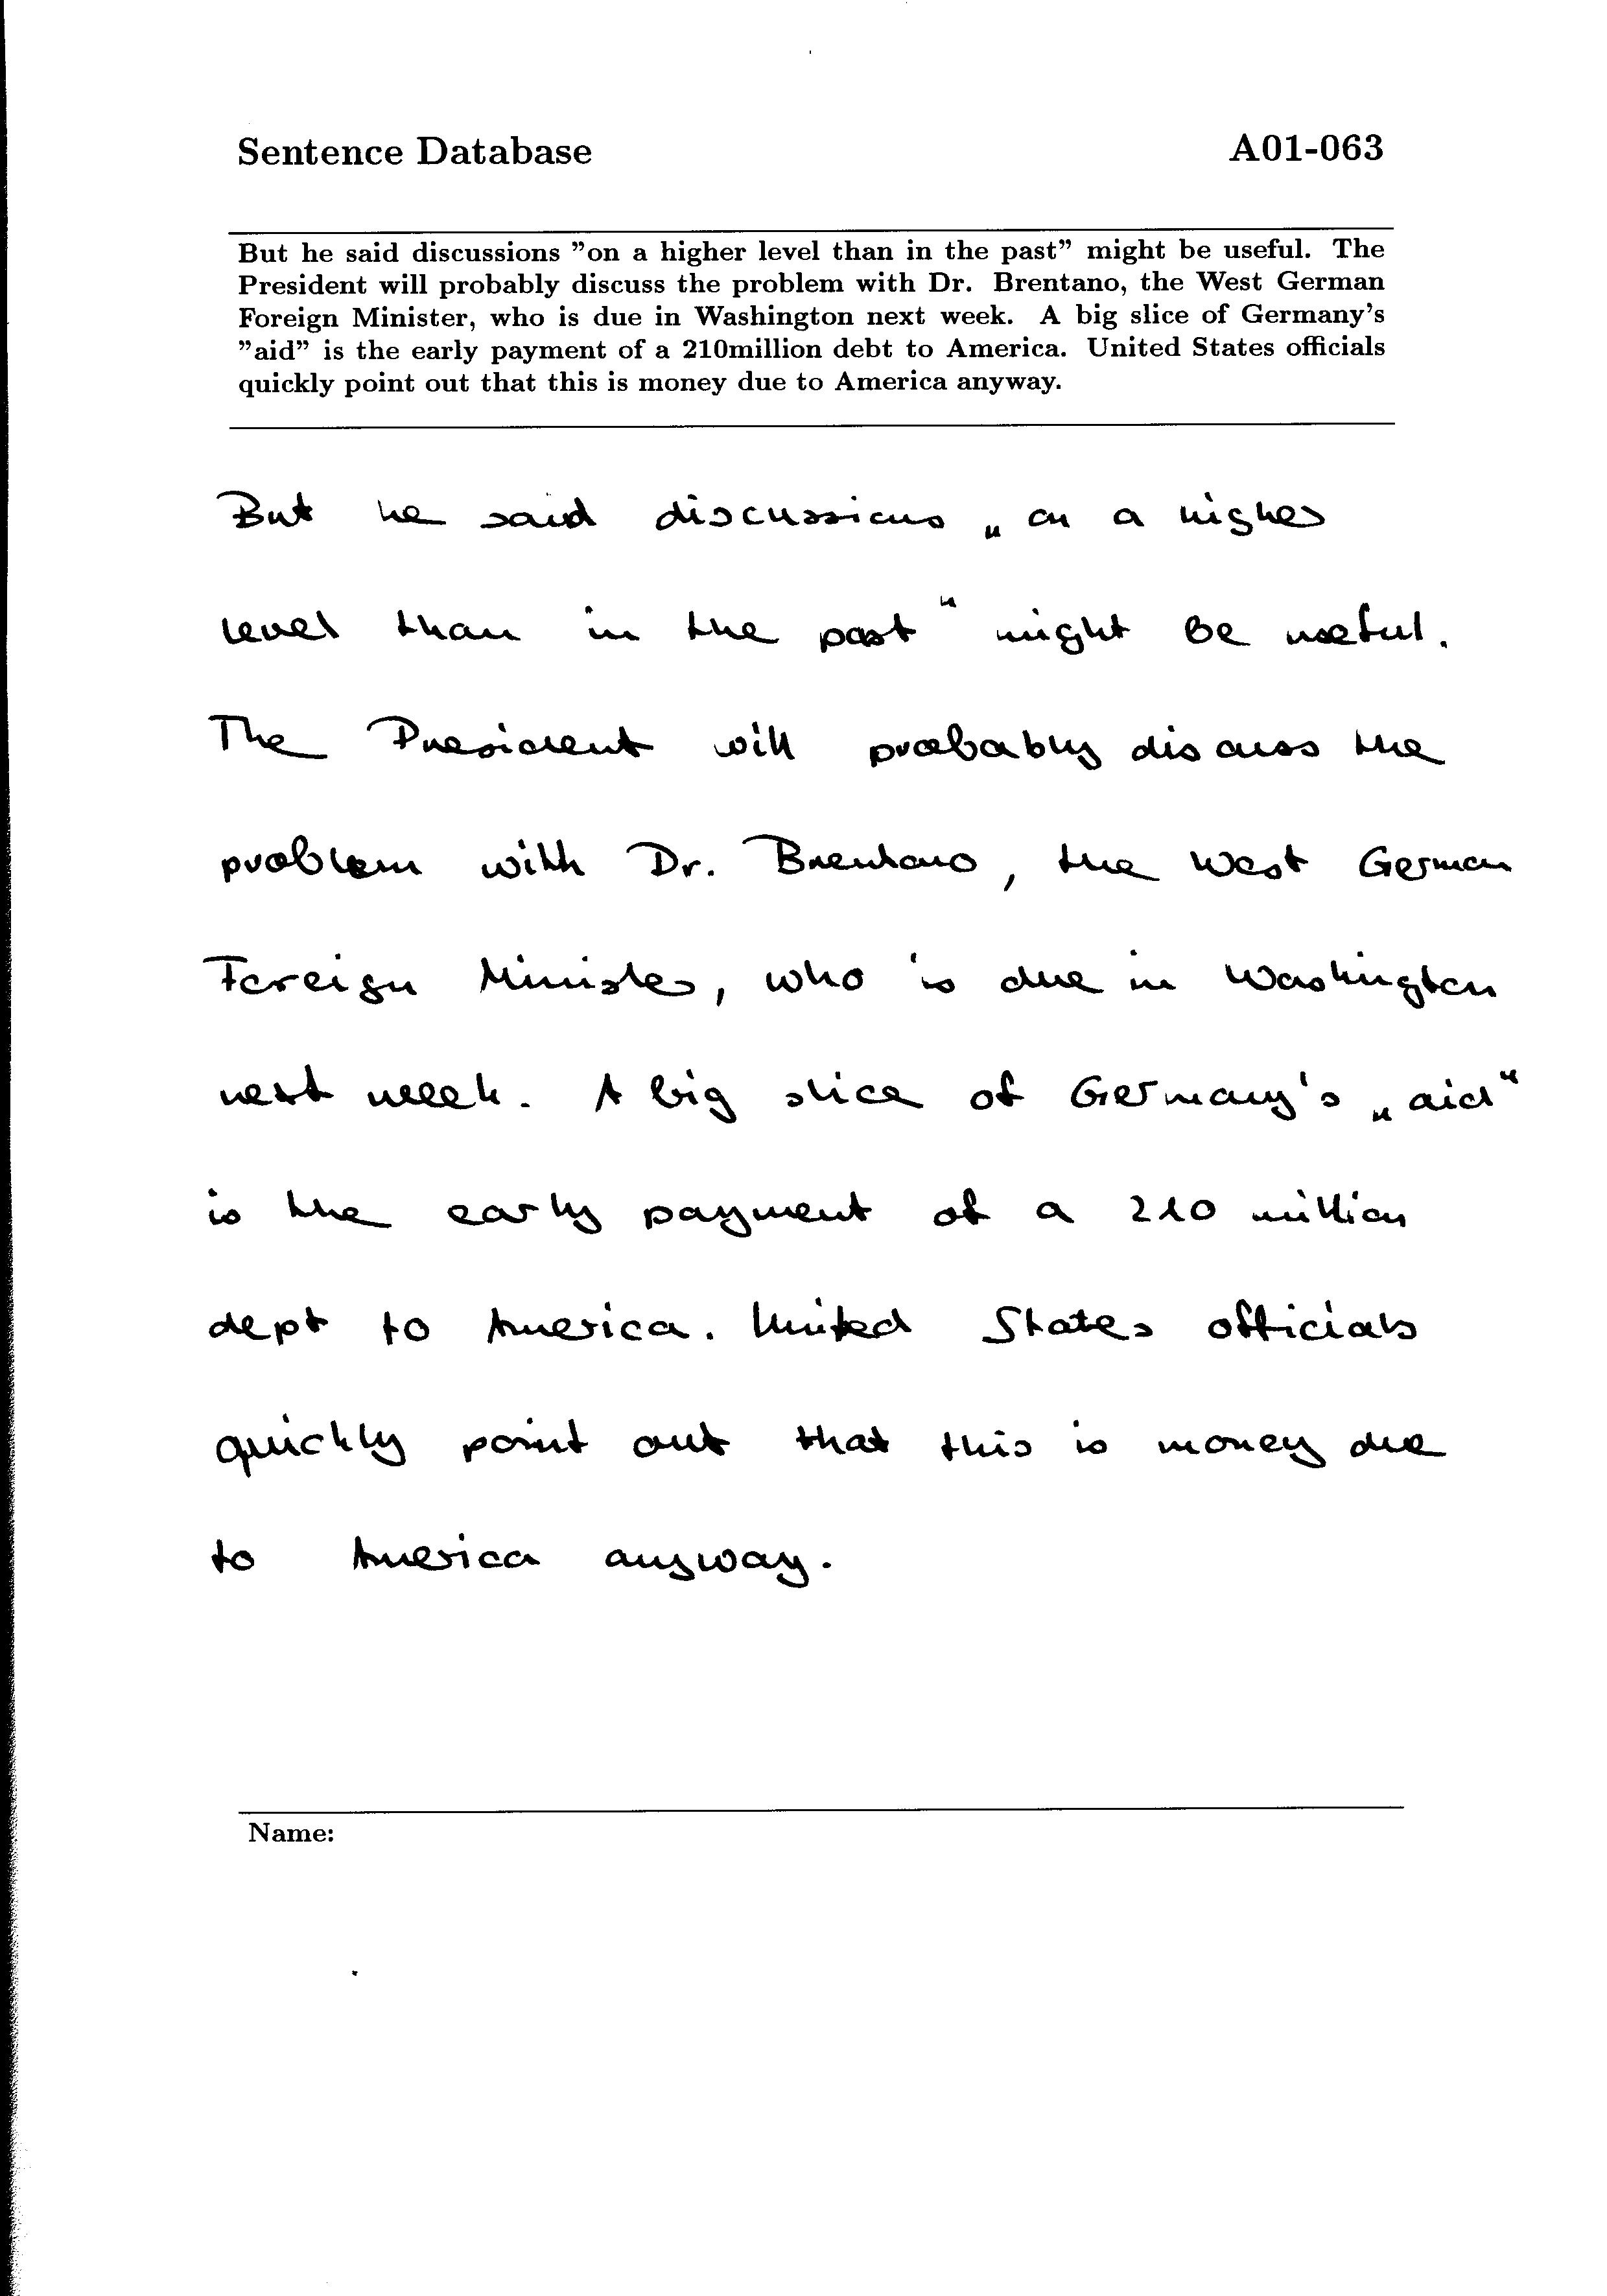 Sentence Database A01-063
But he said discussions "on a higher level than in the past" might be useful. The
President will probably discuss the problem with Dr. Brentano, the West German
Foreign Minister, who is due in Washington next week. A big slice of Germany's
"aid" is the early payment of a 210million debt to America. United States officials
quickly point out that this is money due to America anyway.
But he said discussions „on a higher
level than in the past“ might be useful.
The President will probably discuss the
problem with Dr. Brentano, the West German
Foreign Minister, who is due in Washington
next week. A big slice of Germany's „aid“
is the early payment of a 210 million
dept to America. United States officials
quickly point out that this is money due
to America anyway.
Name: